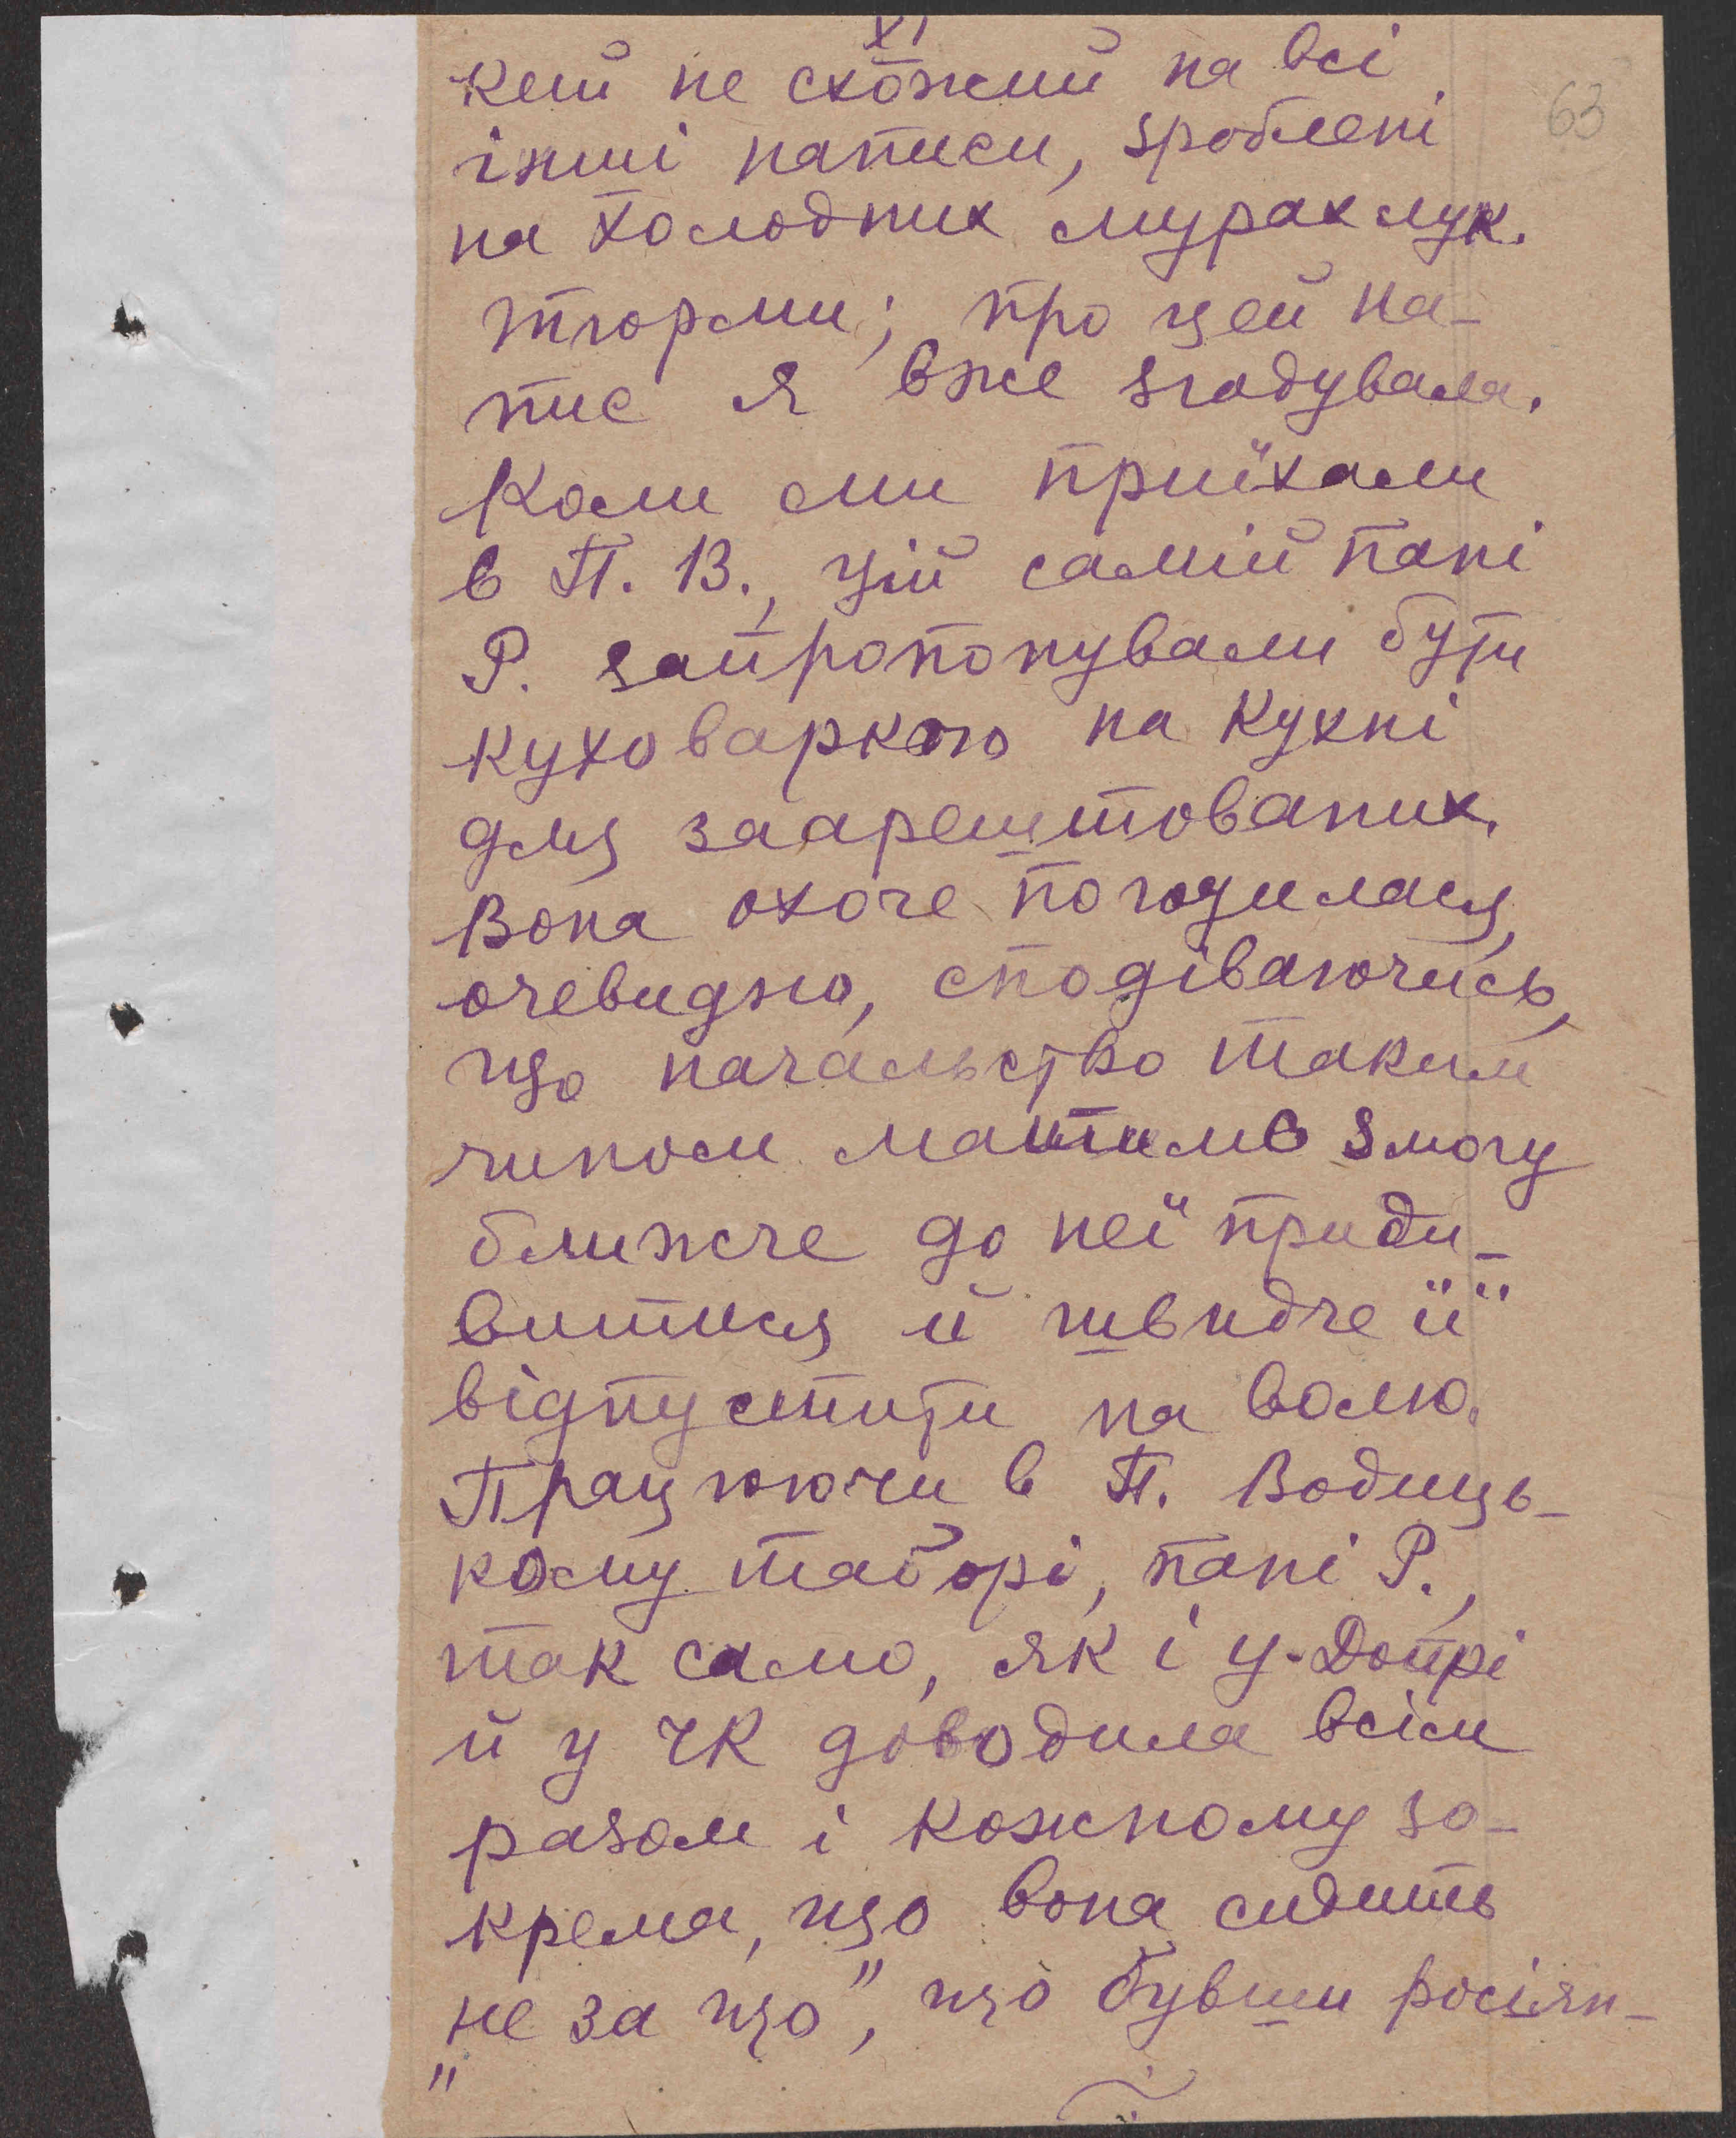 XI
63
кий не схожий на всі
інші написи, зроблені
на холодних мурах лук.
тюрми; про цей на-
пис я вже згадувала.
Коли ми приїхали
в П. В., цій самій пані
Р. запропонували бути
куховаркою на кухні
для заарештованих.
Вона охоче погодилася,
очевидно, сподіваючись,
що начальство таким
чином матиме змогу
ближче до неї приди-
витися й швидче її
відпустити на волю.
Працюючи в П. Водиць-
кому таборі, пані Р.,
так само, як і у Допрі
й у ЧК доводила всім
разом і кожному зо-
крема, що вона сидить
„не за що”, що бувши росіян-